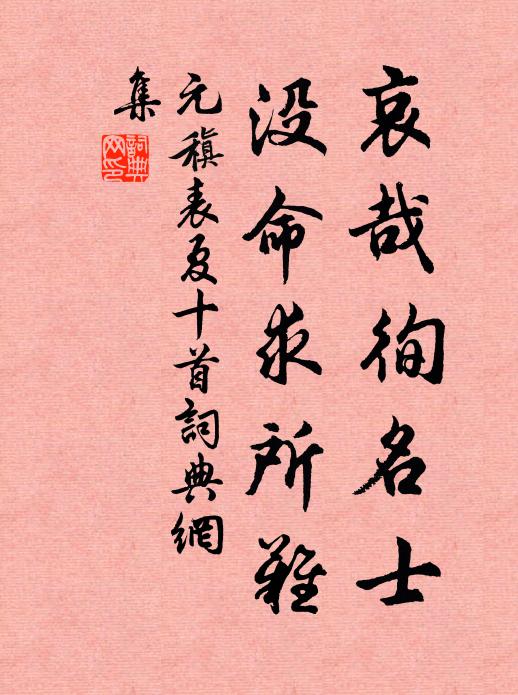 哀哉徇名士
没命求所難
元稹表夏十首詞典網
集
詞典網印